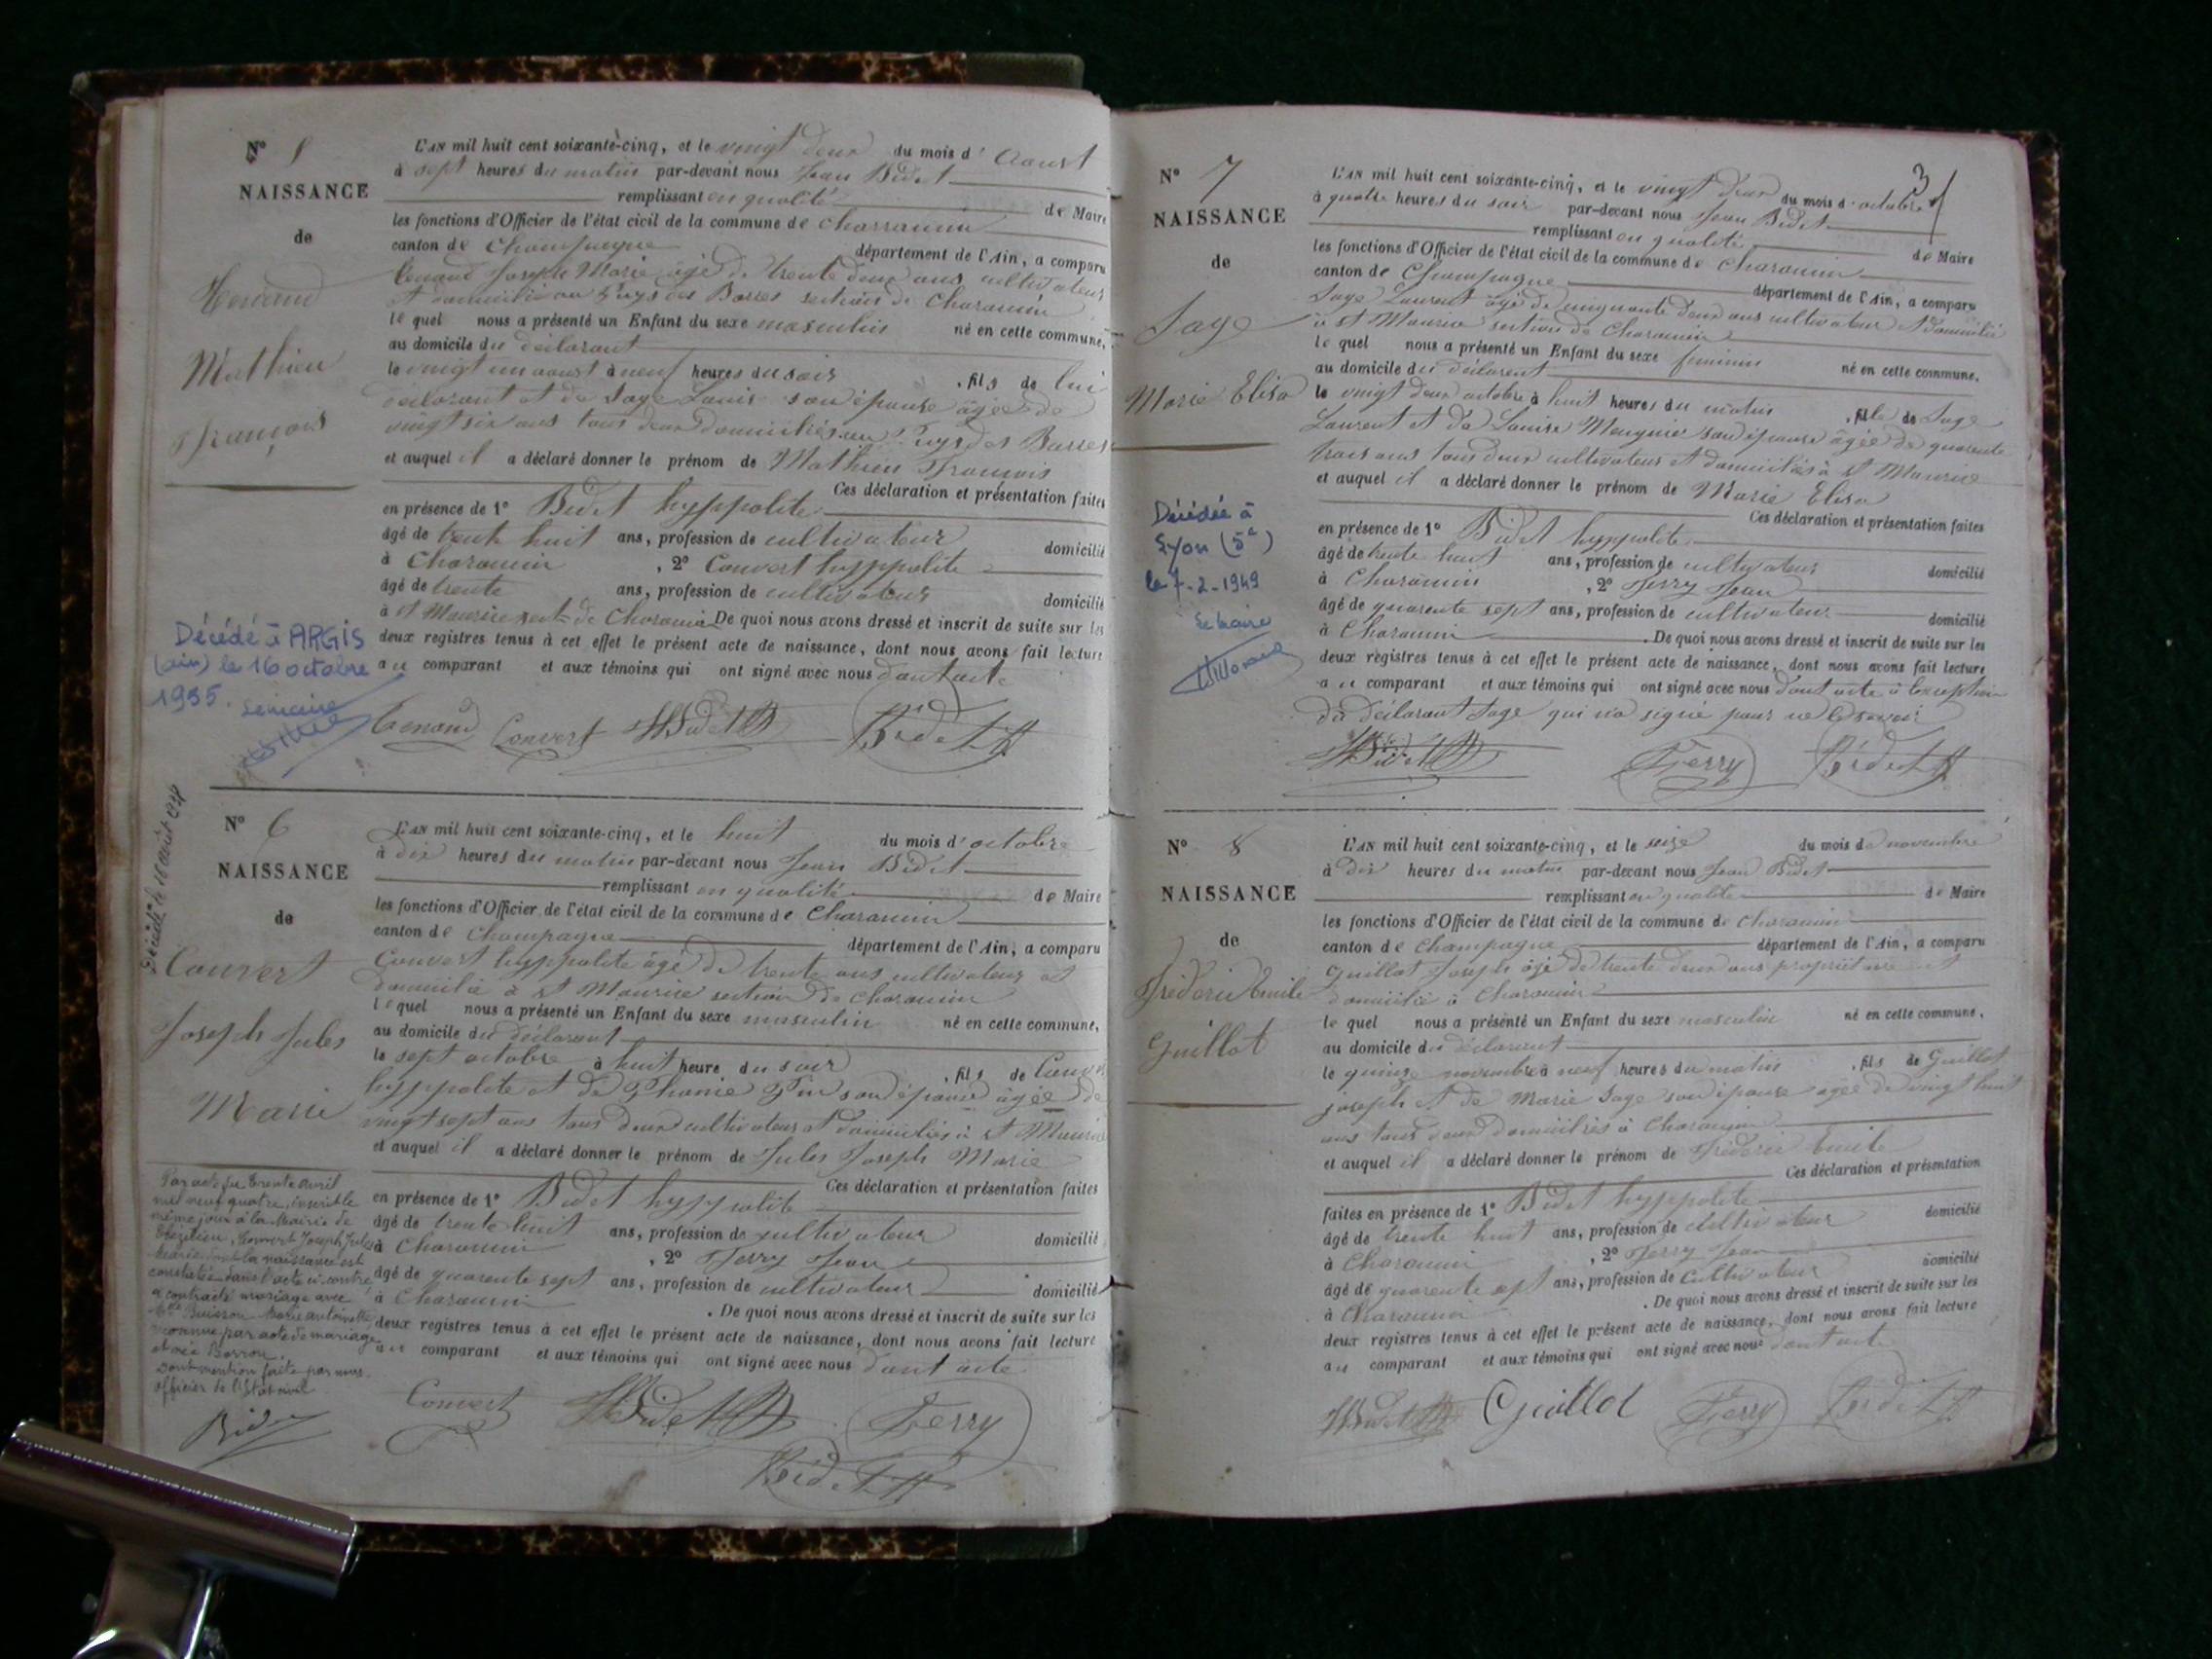 N° 5
NAISSANCE
de
Tenand
Mathieu
François
L'AN mil huit cent soixante-cinq, et le vingt deux du mois d'Aoust
à sept heures du matin par-devant nous Jean Bidet
remplissant en qualité de Maire
les fonctions d'Officier de l'état civil de la commune de Charancin
canton de Champagne département de l'Ain, a comparu
Tenand Joseph Marie âgé de trente deux ans cultivateur
et domicilié au Puys des Barres section de Charancin
le quel nous a présenté un Enfant du sexe masculin né en cette commune,
au domicile du déclarant
le vingt un aoust à neuf heures du soir , fils de lui
déclarant et de Sage Louise son épouse âgée de
vingt six ans tous deux domiciliés au Puys des Barres
et auquel il a déclaré donner le prénom de Mathieu François
Ces déclaration et présentation faites
en présence de 1° Bidet hyppolite
âgé de trente huit ans, profession de cultivateur domicilié
à Charancin , 2° Convert hyppolite
âgé de trente ans, profession de cultivateur domicilié
à St Maurice sect de Charancin De quoi nous avons dressé et inscrit de suite sur les
deux registres tenus à cet effet le présent acte de naissance, dont nous avons fait lecture
au comparant et aux témoins qui ont signé avec nous dont acte
Tenand Convert HBidet Bidet
Décédé à ARGIS
(ain) le 16 octobre
1935. Le maire
N° 6
NAISSANCE
de
Convert
Joseph Jules
Marie
L'AN mil huit cent soixante-cinq, et le huit du mois d'octobre
à dix heures du matin par-devant nous Jean Bidet
remplissant en qualité de Maire
les fonctions d'Officier de l'état civil de la commune de Charancin
canton de Champagne département de l'Ain, a comparu
Convert hyppolite âgé de trente ans cultivateur et
domicilié à St Maurice section de Charancin
le quel nous a présenté un Enfant du sexe masculin né en cette commune,
au domicile du déclarant
le sept octobre à huit heure du soir , fils de Conv
hyppolite et de Phanie Pin son épouse âgée de
vingt sept ans tous deux cultivateurs et domiciliés à St Maurice
et auquel il a déclaré donner le prénom de Jules Joseph Marie
Ces déclaration et présentation faites
en présence de 1° Bidet hyppolite
âgé de trente huit ans, profession de cultivateur domicilié
à Charancin , 2° Ferry Jean
âgé de quarente sept ans, profession de cultivateur domicilié
à Charancin . De quoi nous avons dressé et inscrit de suite sur les
deux registres tenus à cet effet le présent acte de naissance, dont nous avons fait lecture
au comparant et aux témoins qui ont signé avec nous dont acte
Convert HBidet Ferry
Bidet
Par acte du trente avril
mil neuf quatre, inscrit le
même jour à la Mairie de
Convert Joseph Jules
Marie dont la naissance est
constatée dans l'acte ci-contre
a contracté mariage avec
Mlle Buisson Marie antoinette
reconnue par acte de mariage
dont mention faite par nous
officier de l'état civil
3
N° 7
NAISSANCE
de
Sage
Marie Elisa
L'AN mil huit cent soixante-cinq, et le vingt deux du mois d'octobre
à quatre heures du soir par-devant nous Jean Bidet
remplissant en qualité de Maire
les fonctions d'Officier de l'état civil de la commune de Charancin
canton de Champagne département de l'Ain, a comparu
Sage Laurent âgé de cinquante deux ans cultivateur et domicilié
à St Maurice section de Charancin
le quel nous a présenté un Enfant du sexe feminin né en cette commune,
au domicile du déclarent
le vingt deux octobre à huit heures du matin , fille de Sage
Laurent et de Louise Meugnier son épouse âgée de quarente
trois ans tous deux cultivateurs et domiciliés à St Maurice
et auquel il a déclaré donner le prénom de Marie Elisa
Ces déclaration et présentation faites
en présence de 1° Bidet hyppolite
âgé de trente huit ans, profession de cultivateur domicilié
à Charancin , 2° Ferry Jean
âgé de quarente sept ans, profession de cultivateur domicilié
à Charancin . De quoi nous avons dressé et inscrit de suite sur les
deux registres tenus à cet effet le présent acte de naissance, dont nous avons fait lecture
au comparant et aux témoins qui ont signé avec nous dont acte à l'exception
du déclarant Sage qui n'a signé pour ne le savoir
HBidet Ferry Bidet
Décédée à
Lyon (5e)
le 7-2-1949
Le Maire
N° 8
NAISSANCE
de
Fréderic Emile
Guillot
L'AN mil huit cent soixante-cinq, et le seize du mois de novembre
à dix heures du matin par-devant nous Jean Bidet
remplissant en qualité de Maire
les fonctions d'Officier de l'état civil de la commune de Charancin
canton de Champagne département de l'Ain, a comparu
Guillot Joseph âgé de trente deux ans propriétaire et
domicilié à Charancin
le quel nous a présenté un Enfant du sexe masculin né en cette commune,
au domicile du déclarent
le quinze novembre à neuf heures du matin , fils de Guillot
joseph et de Marie Sage son épouse agée de vingt huit
ans tous deux domiciliés à Charancin
et auquel il a déclaré donner le prénom de Fréderic Emile
Ces déclaration et présentation
faites en présence de 1° Bidet hyppolite
âgé de trente huit ans, profession de cultivateur domicilié
à Charancin , 2° Ferry Jean
âgé de quarente sept ans, profession de cultivateur domicilié
à Charancin . De quoi nous avons dressé et inscrit de suite sur les
deux registres tenus à cet effet le présent acte de naissance, dont nous avons fait lecture
au comparant et aux témoins qui ont signé avec nous dont acte
HBidet Guillot Ferry Bidet